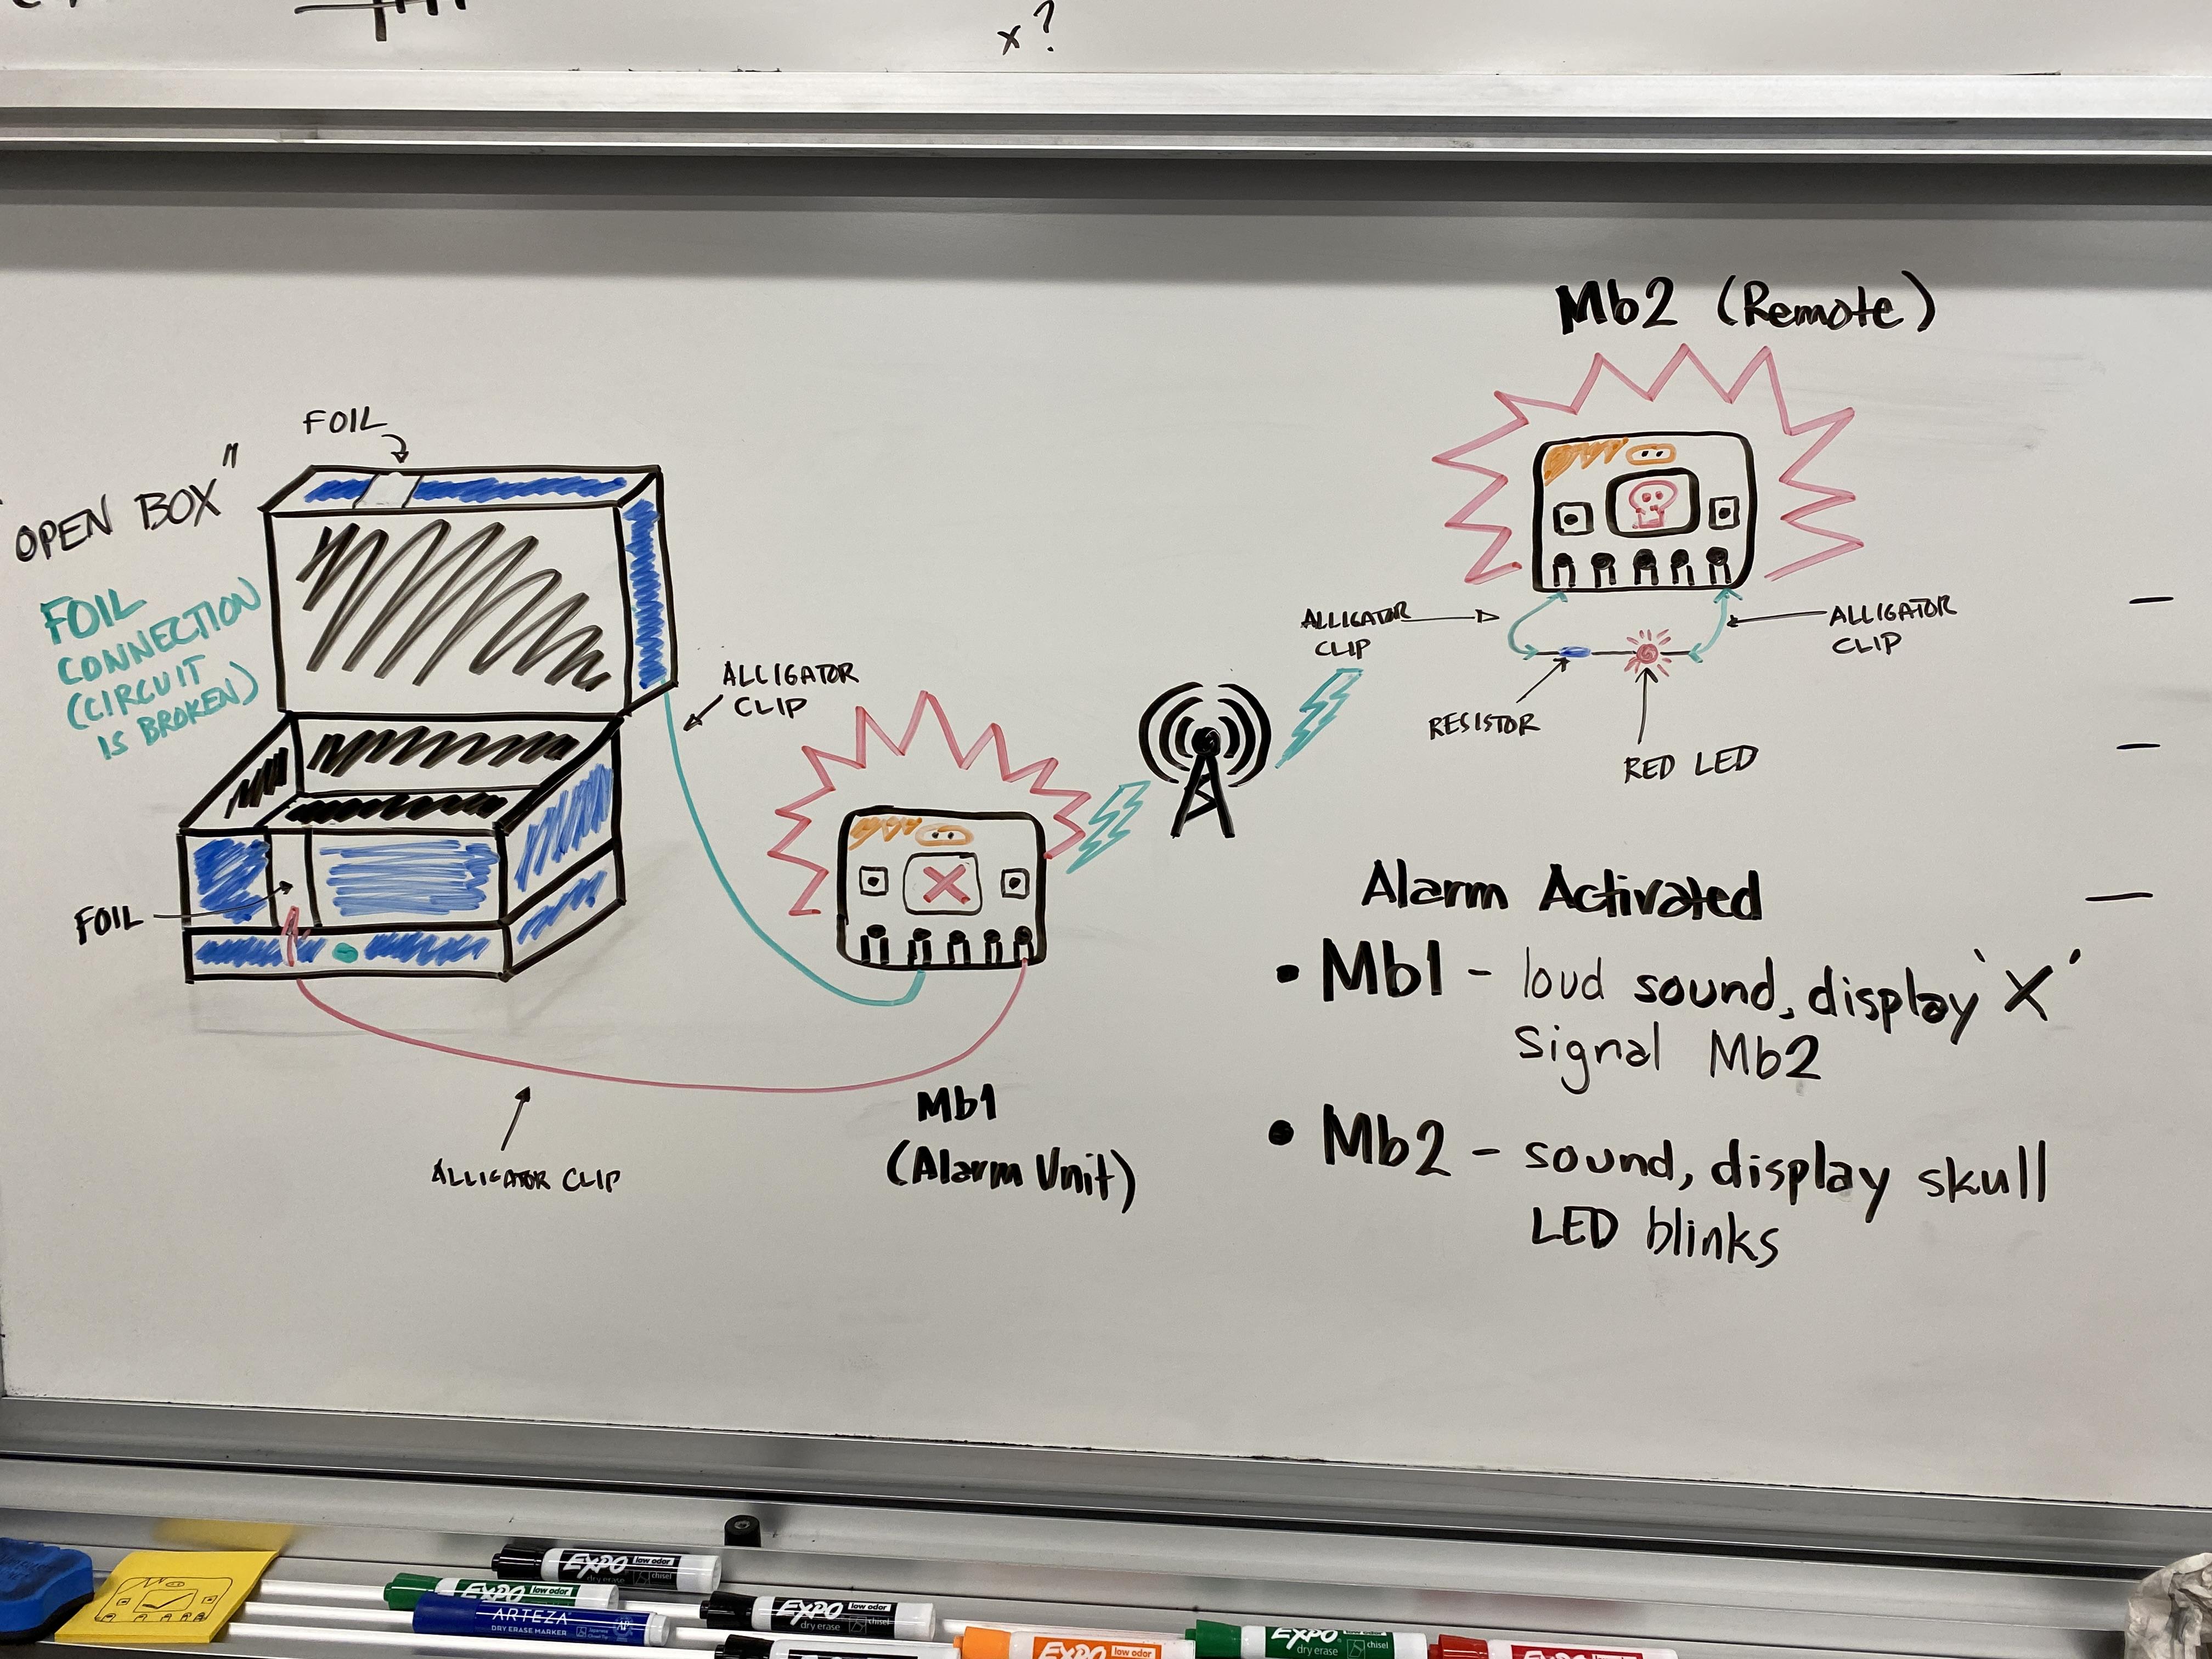 x?
Mb2 (Remote)
FOIL
"OPEN BOX"
FOIL
CONNECTION
(CIRCUIT
IS BROKEN)
ALLIGATOR
CLIP
ALLIGATOR
CLIP
ALLIGATOR
CLIP
RESISTOR
RED LED
FOIL
X
Alarm Activated
• Mb1 - loud sound, display 'X'
Signal Mb2
Mb1
(Alarm Unit)
ALLIGATOR CLIP
• Mb2 - sound, display skull
LED blinks
EXPO low odor
dry erase chisel
EXPO low odor
ARTEZA
DRY ERASE MARKER
EXPO low odor
dry erase chisel
EXPO low odor
EXPO low odor
dry erase chisel
EXPO low odor